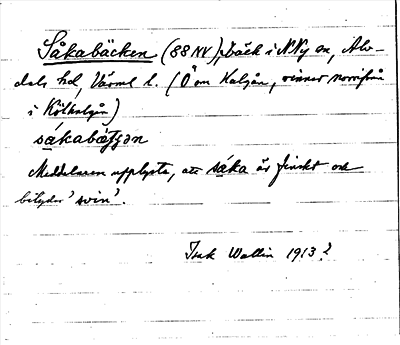 Såkabäcken (88 NV), bäck i N Ny sn, Älv-
dals hd, Värml l. (Ö om Halgån, rinner norrifrån
i Kölhalgån)
såkabäƫʃən
Meddelaren upplyste, att såka är finskt och
betyder 'svin'.
Isak Wallin 1913?